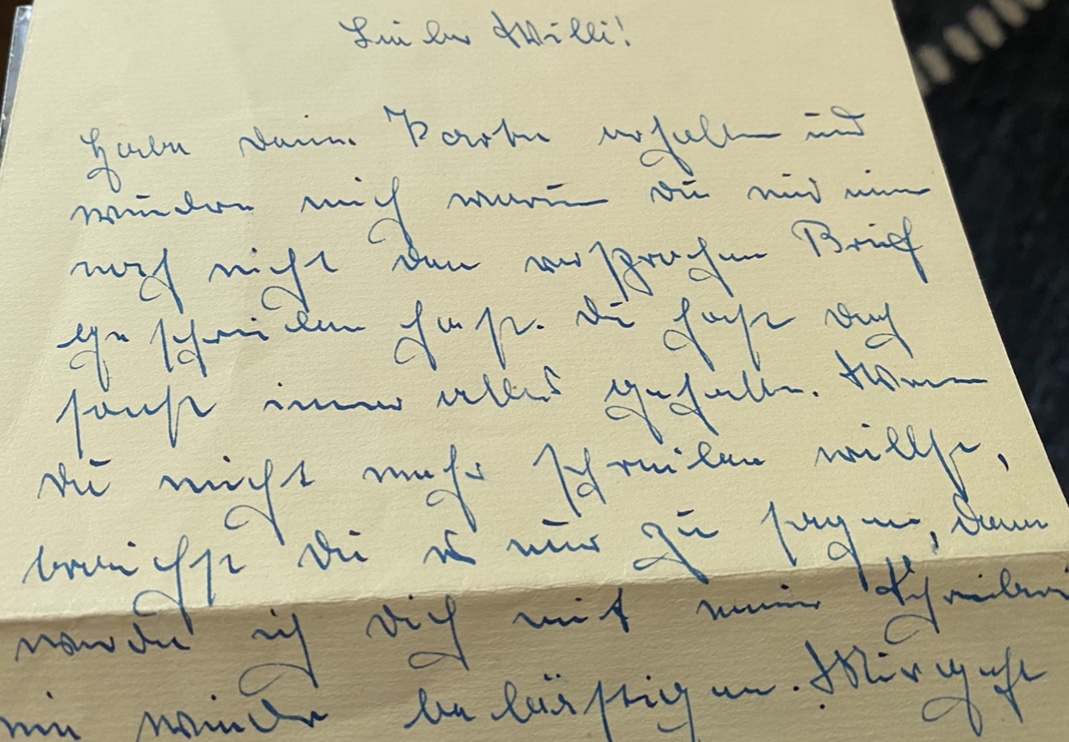 Lieber Willi!
Habe Deine Karte erhalten und
wundere mich warum Du mir immer
noch nicht den versprochen Brief
geschrieben hast. Du hast doch
sonst immer alles gehalten. Wenn
Du nicht mehr schreiben willst,
brauchst Du es nur zu sagen, dann
werde ich Dich mit meiner Schreiberei
nie wieder belästigen. Mir geht